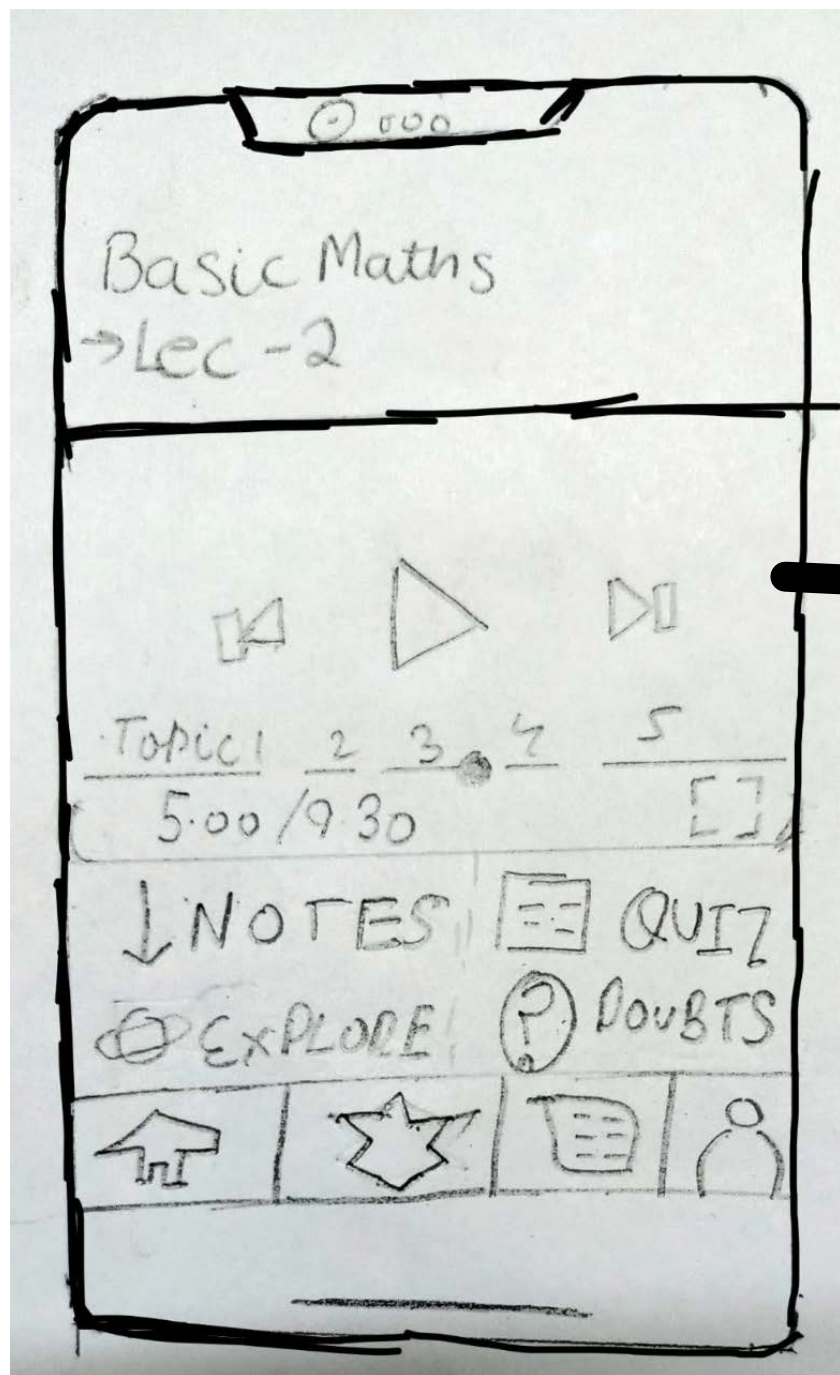 Basic Maths
→ Lec - 2
Topic 1 2 3 4 5
5.00/9.30
↓ NOTES QUIZ
EXPLORE ? DOUBTS